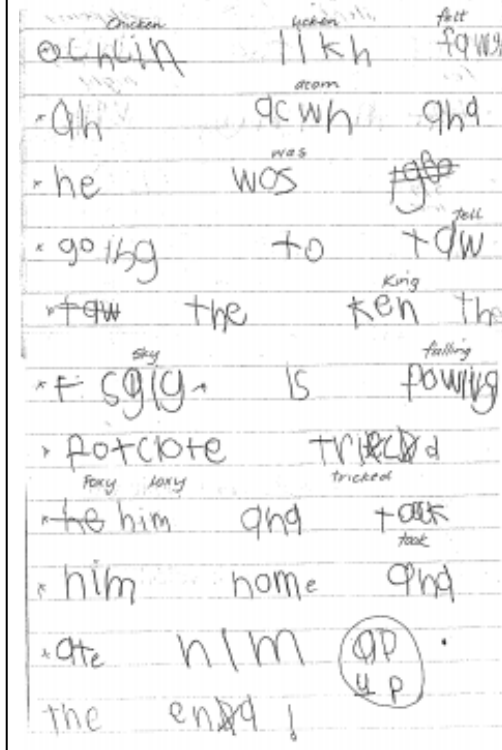 Chicken licken felt
ochcin llkh faw
acorn
ah acwh and
was
he wos
tell
going to taw
King
taw the ken the
sky falling
F sgig is powing
potclote tricd
Foxy loxy tricked
he him and took
took
him home and
ate him ap .
up
the end !